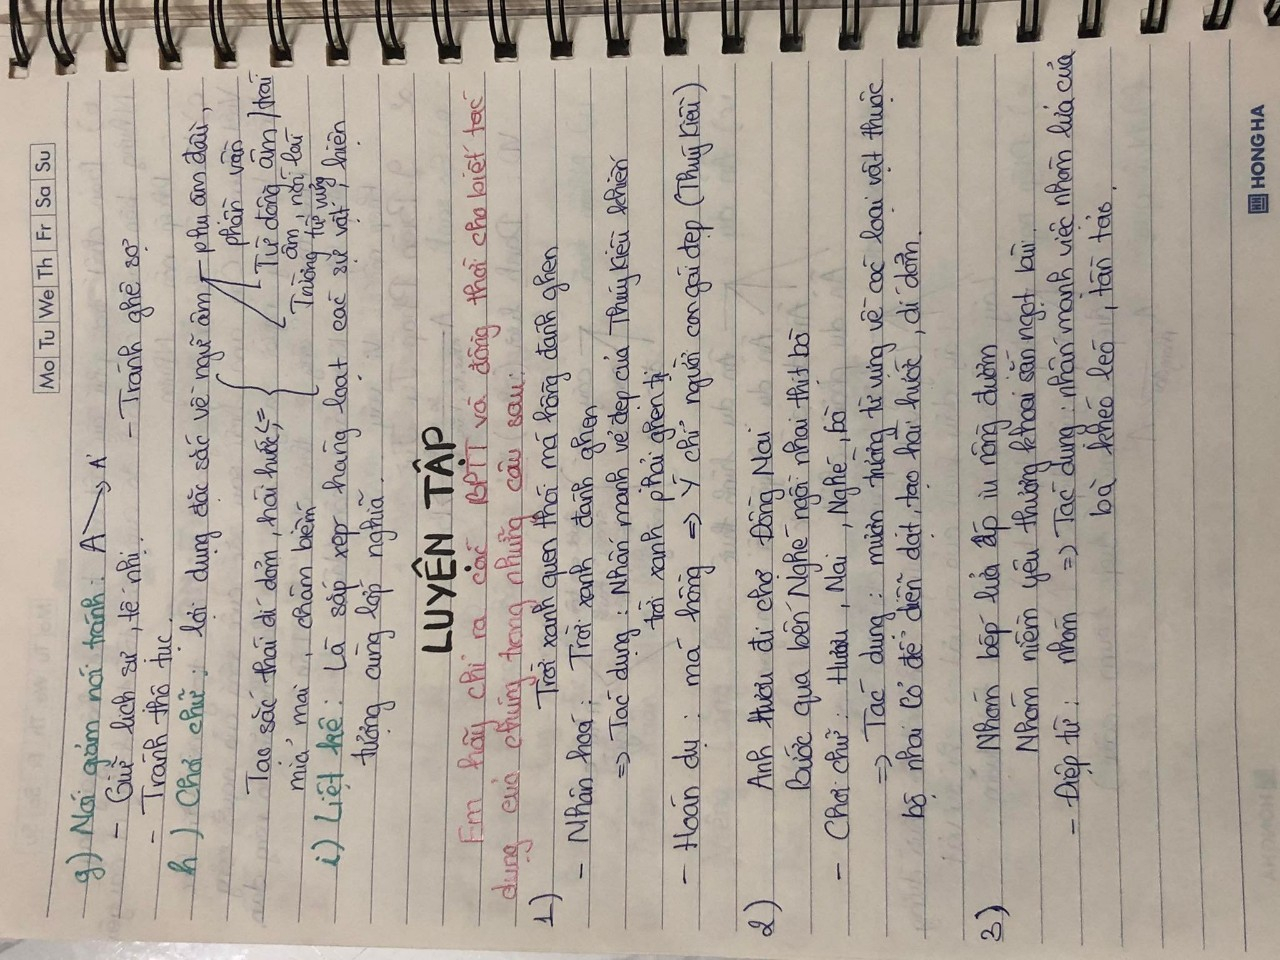 Mo Tu We Th Fr Sa Su
g) Nói giảm nói tránh: A → A'
- Giữ lịch sự, tế nhị. - Tránh ghê sợ
- Tránh thô tục.
h) Chơi chữ: lợi dụng đặc sắc về ngữ âm - phụ âm đầu,
phần vần
Từ đồng âm / trái
âm, nói lái
Trường từ vựng
Tạo sắc thái dí dỏm, hài hước, =
mỉa mai, châm biếm
i) Liệt kê: Là sắp xếp hàng loạt các sự vật, hiện
tượng cùng lớp nghĩa.
LUYỆN TẬP
Em hãy chỉ ra các BPTT và đồng thời cho biết tác
dụng của chúng trong những câu sau:
1) Trời xanh quen thói má hồng đánh ghen
- Nhân hoá: Trời xanh đánh ghen
=> Tác dụng: Nhấn mạnh vẻ đẹp của Thúy Kiều khiến
trời xanh phải ghen tị
- Hoán dụ: má hồng => Ý chỉ người con gái đẹp (Thuý Kiều)
2) Anh Hươu đi chợ Đồng Nai
Bước qua bến Nghé ngồi nhai thịt bò
- Chơi chữ: Hươu, Nai, Nghé, bò
=> Tác dụng: mượn trường từ vựng về các loài vật thuộc
bộ nhai cỏ để diễn đạt, tạo hài hước, dí dỏm.
3) Nhóm bếp lửa ấp iu nồng đượm
Nhóm niềm yêu thương khoai sắn ngọt bùi
- Điệp từ: nhóm => Tác dụng: nhấn mạnh việc nhóm lửa của
bà khéo léo, tần tảo.
HONG HA